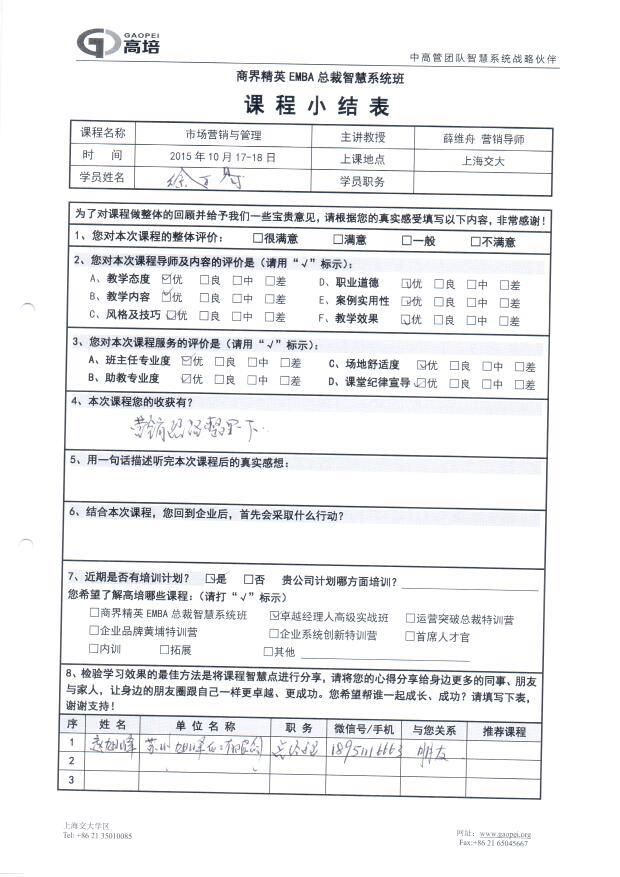 GAOPEI
高培
中高管团队智慧系统战略伙伴
商界精英 EMBA 总裁智慧系统班
课程小结表
课程名称 市场营销与管理 主讲教授 薛维舟 营销导师
时 间 2015 年 10 月 17-18 日 上课地点 上海交大
学员姓名 徐 学员职务
为了对课程做整体的回顾并给予我们一些宝贵意见，请根据您的真实感受填写以下内容，非常感谢！
1、您对本次课程的整体评价： □很满意 □满意 □一般 □不满意
2、您对本次课程导师及内容的评价是（请用“√”标示）：
A、教学态度 ☑优 □良 □中 □差 D、职业道德 ☑优 □良 □中 □差
B、教学内容 ☑优 □良 □中 □差 E、案例实用性 ☑优 □良 □中 □差
C、风格及技巧 ☑优 □良 □中 □差 F、教学效果 ☑优 □良 □中 □差
3、您对本次课程服务的评价是（请用“√”标示）：
A、班主任专业度 ☑优 □良 □中 □差 C、场地舒适度 ☑优 □良 □中 □差
B、助教专业度 ☑优 □良 □中 □差 D、课堂纪律宣导 ☑优 □良 □中 □差
4、本次课程您的收获有？
营销思路整理一下..
5、用一句话描述听完本次课程后的真实感想：
6、结合本次课程，您回到企业后，首先会采取什么行动？
7、近期是否有培训计划？ ☑是 □否 贵公司计划哪方面培训？
您希望了解高培哪些课程：（请打“√”标示）
□商界精英 EMBA 总裁智慧系统班 ☑卓越经理人高级实战班 □运营突破总裁特训营
□企业品牌黄埔特训营 □企业系统创新特训营 □首席人才官
□内训 □拓展 □其他
8、检验学习效果的最佳方法是将课程智慧点进行分享，请将您的心得分享给身边更多的同事、朋友
与家人，让身边的朋友圈跟自己一样更卓越、更成功。您希望帮谁一起成长、成功？请填写下表，
谢谢支持！
序 姓 名 单 位 名 称 职 务 微信号/手机 与您关系 推荐课程
1 赵旭峰 苏州旭峰 有限公司 总经理 18951116663 朋友
2
3
上海交大学区
Tel: +86 21 35010085
网址: www.gaopei.org
Fax:+86 21 65045667